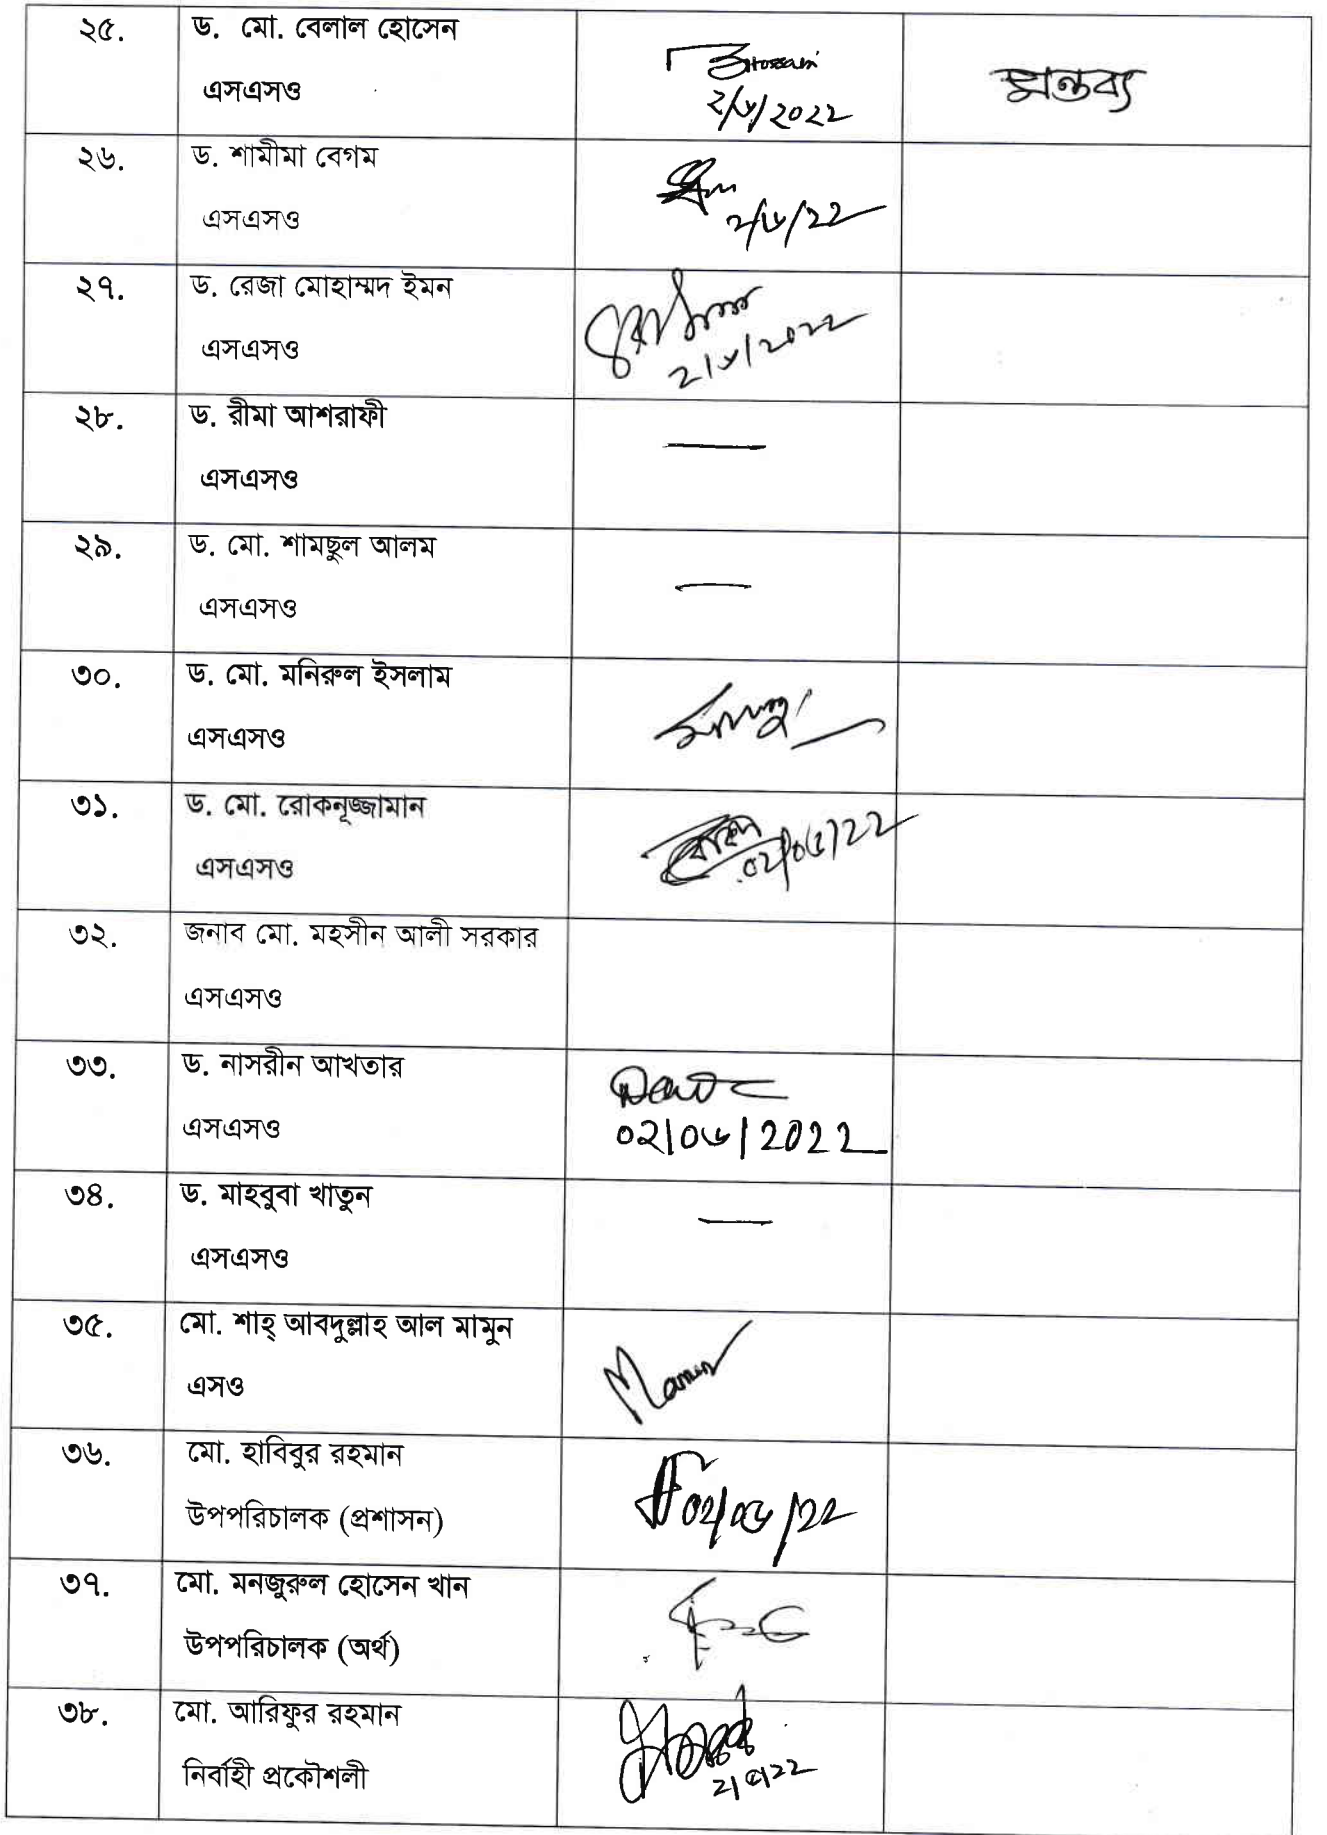 ২৫.
ড. মো. বেলাল হোসেন
এসএসও
Hossain
২/৬/২০২২
মন্তব্য
২৬.
ড. শামীমা বেগম
এসএসও
২/৬/২২
২৭.
ড. রেজা মোহাম্মদ ইমন
এসএসও
২/৬/২০২২
২৮.
ড. রীমা আশরাফী
এসএসও
২৯.
ড. মো. শামছুল আলম
এসএসও
৩০.
ড. মো. মনিরুল ইসলাম
এসএসও
৩১.
ড. মো. রোকনূজ্জামান
এসএসও
০২/০৬/২২
৩২.
জনাব মো. মহসীন আলী সরকার
এসএসও
৩৩.
ড. নাসরীন আখতার
এসএসও
০২/০৬/২০২২
৩৪.
ড. মাহবুবা খাতুন
এসএসও
৩৫.
মো. শাহ্ আবদুল্লাহ আল মামুন
এসও
Mamun
৩৬.
মো. হাবিবুর রহমান
উপপরিচালক (প্রশাসন)
০২/০৬/২২
৩৭.
মো. মনজুরুল হোসেন খান
উপপরিচালক (অর্থ)
৩৮.
মো. আরিফুর রহমান
নির্বাহী প্রকৌশলী
২/৬/২২